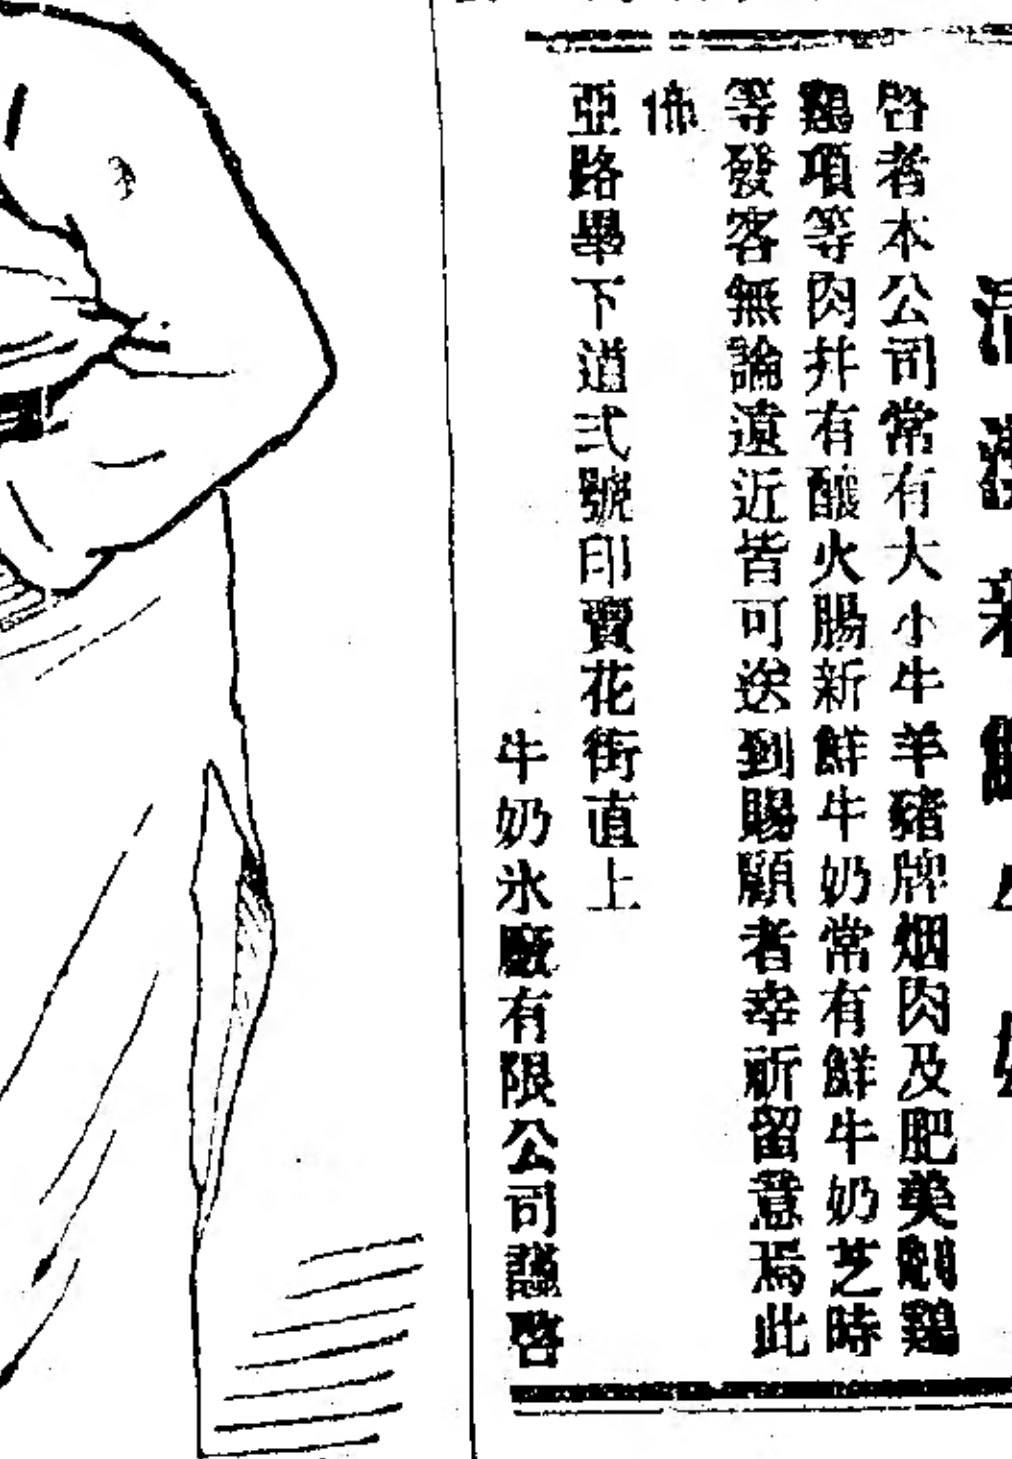 啓者本公司常有大小牛羊豬牌烟肉及肥美騸鷄
鷄項等肉并有釀火腸新鮮牛奶常有鮮牛奶芝時
等發客無論遠近皆可送到賜顧者幸祈留意焉此
佈
亞路畢下道弍號印寶花街直上
牛奶氷廠有限公司謹啓